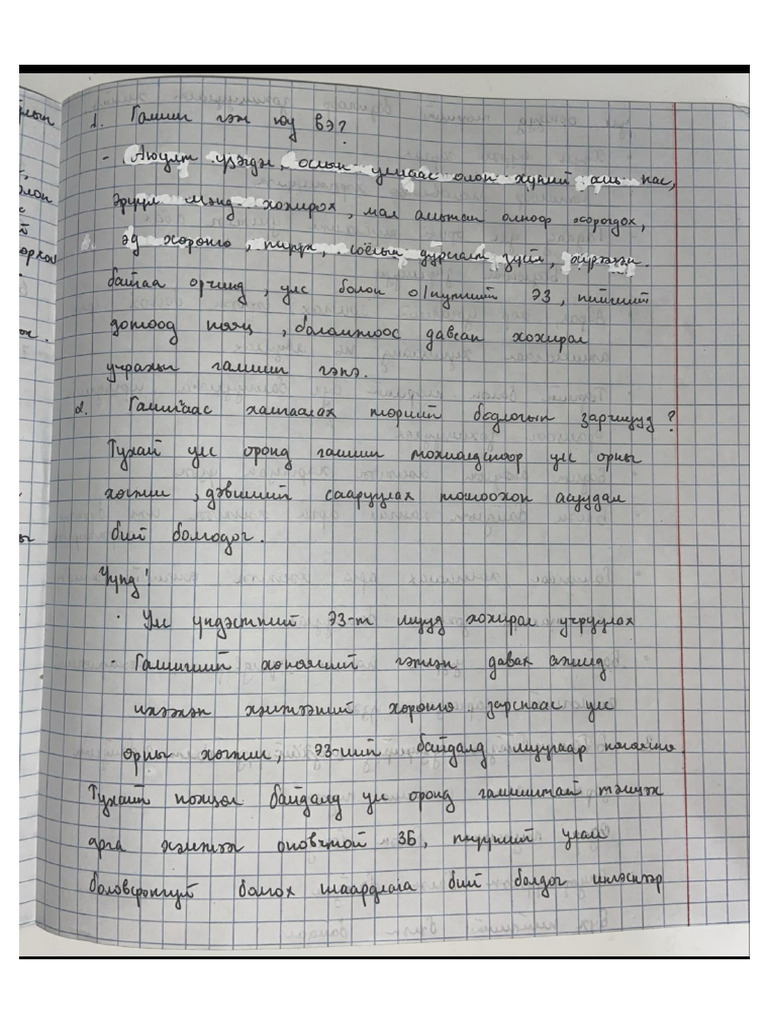 1. Гамшиг гэж юу вэ?
- Аюулт үзэгдэл, ослын улмаас олон хүний амь нас,
эрүүл мэнд хохирох, мал амьтан олноор хорогдох,
эд хөрөнгө, түүх, соёлын дурсгалт зүйл, хүрээлэн
байгаа орчинд, улс болон о/нутгийн ЭЗ, нийгмийн
дотоод нөөц, боломжоос давсан хохирол
учрахыг гамшиг гэнэ.
2. Гамшгаас хамгаалах төрийн бодлогын зарчмууд?
Тухай улс оронд гамшиг тохиолдсноор улс орны
хөгжил, дэвшлийг сааруулах томоохон асуудал
бий болгодог.
Үүнд:
· Улс үндэстний ЭЗ-т шууд хохирол учруулах
· Гамшгийн хөнөөлийг гэтлэн давах ажилд
ихээхэн хэмжээний хөрөнгө зарснаас улс
орны хөгжил, ЭЗ-ийн байдалд шууд
Тухайн нөхцөл байдалд улс оронд гамшигтай тэмцэх
арга хэмжээг оновчтой ЗБ, түүний улам
боловсронгуй болгох шаардлага бий болдог ингэснээр